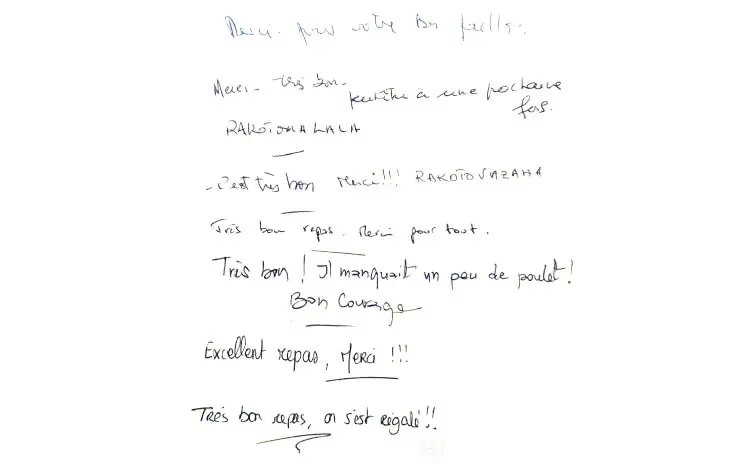 Merci pour votre bon
Merci - très bon -
peut être à une prochaine
fois.
RAKOTOMALALA
- c'est très bon Merci!!! RAKOTOVAZAHA
Très bon repas. Merci pour tout.
Très bon ! Il manquait un peu de poulet !
Bon Courage
Excellent repas, Merci !!!
Très bon repas, on s'est régalé !!